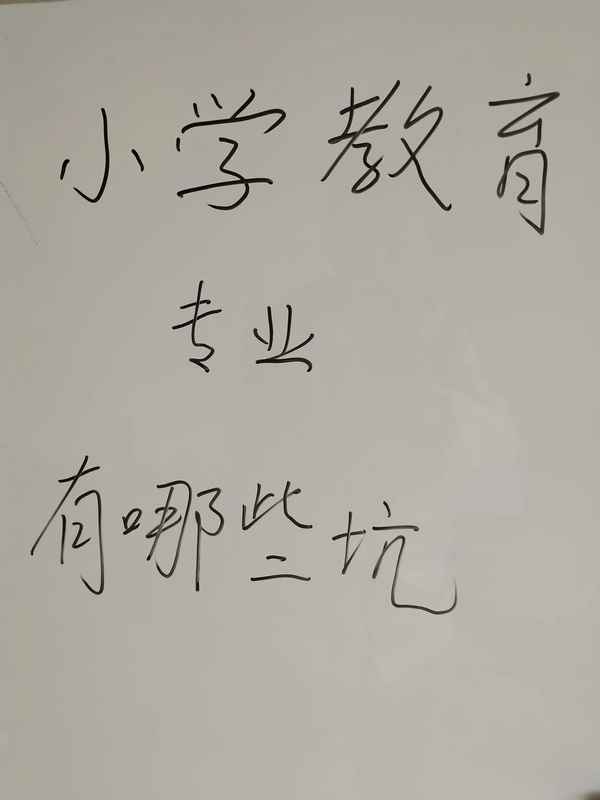 小学教育
专业
有哪些坑